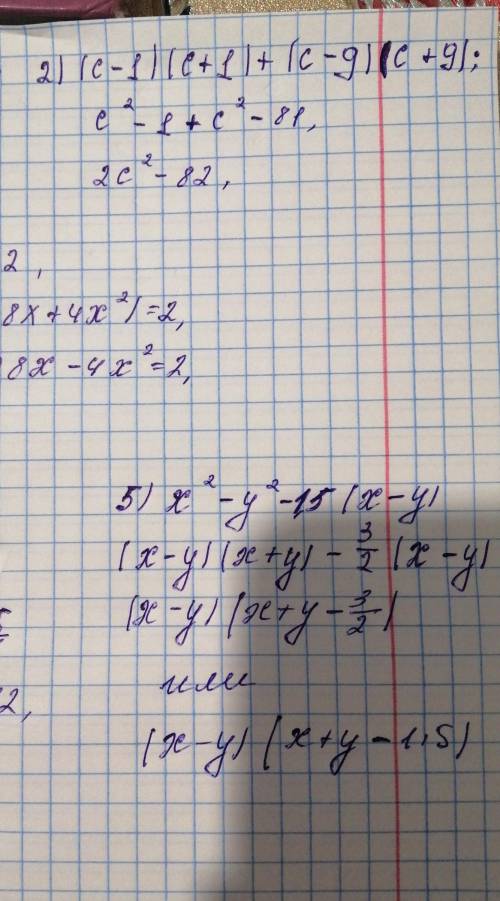 2) (c-1)(c+1)+(c-9)(c+9);
c²-1+c²-81,
2c²-82,
2,
8x+4x²)=2,
8x-4x²=2,
5) x²-y²-1,5(x-y)
(x-y)(x+y)-3/2(x-y)
(x-y)(x+y-3/2)
2,
или
(x-y)(x+y-1,5)